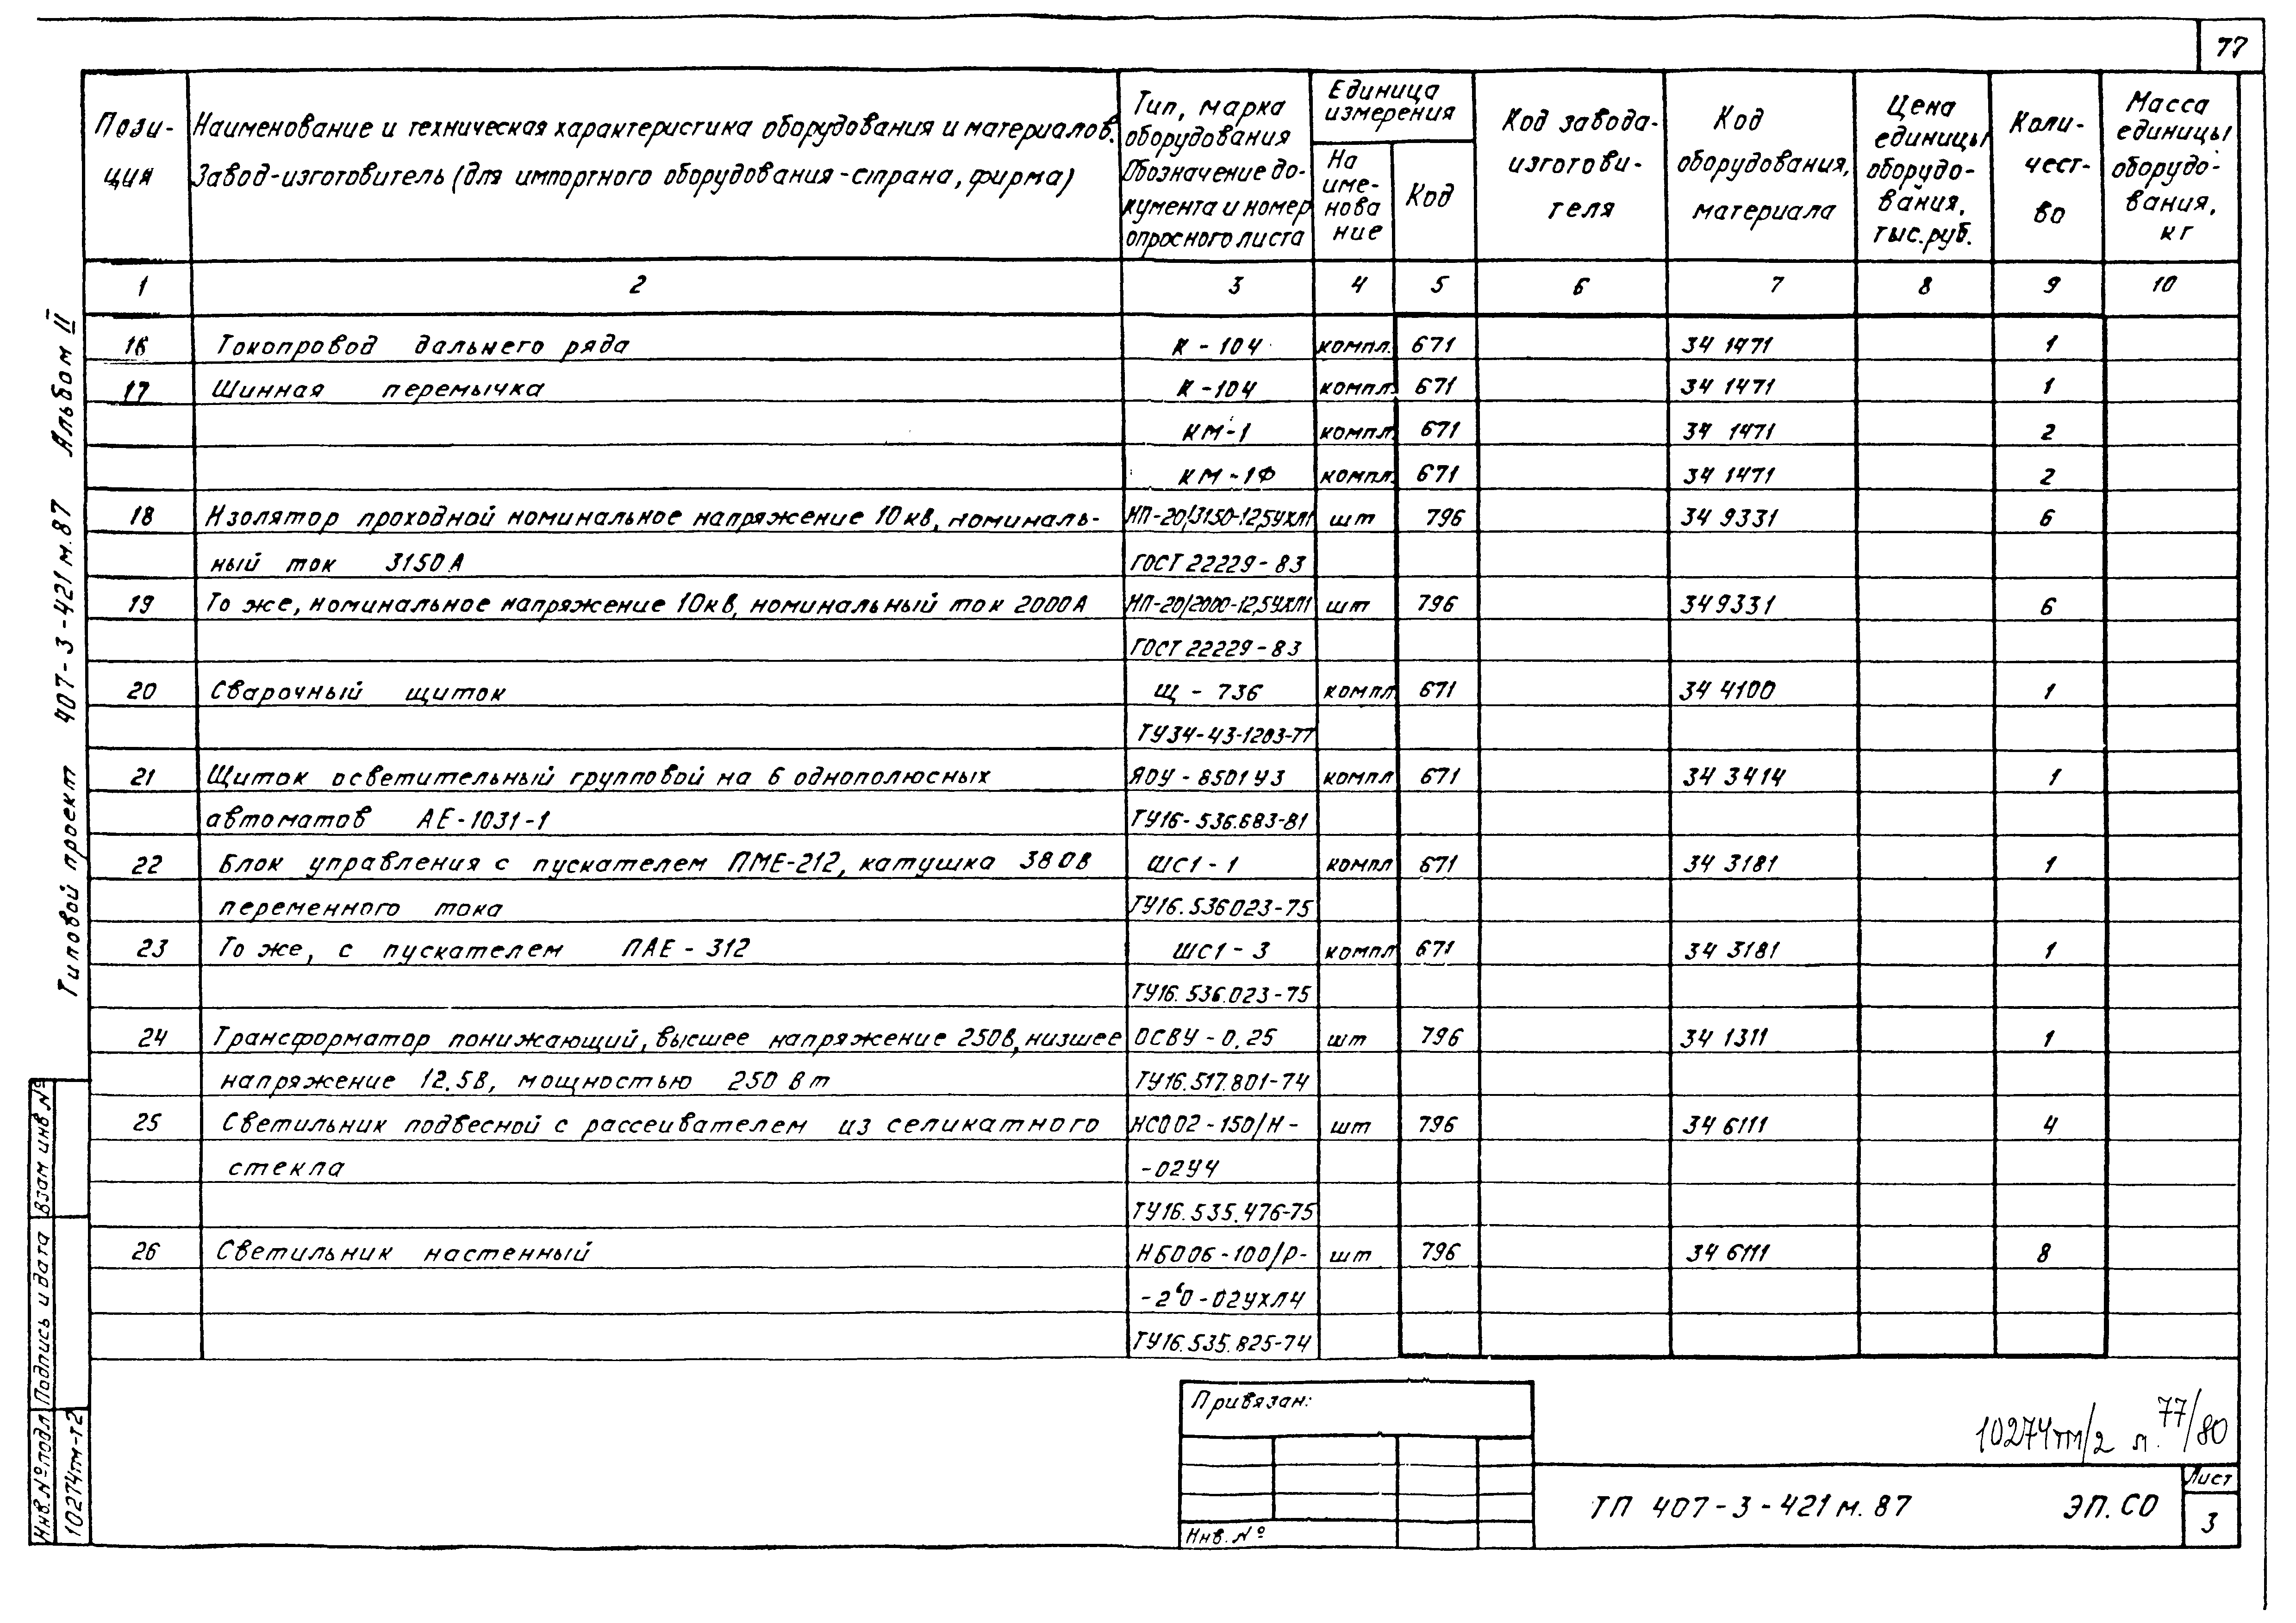 77
Пози-
ция
Наименование и техническая характеристика оборудования и материалов.
Завод-изготовитель (для импортного оборудования - страна, фирма)
Тип, марка
оборудования
Обозначение до-
кумента и номер
опросного листа
Единица
измерения
На
име-
нова
ние
Код
Код завода-
изготови-
теля
Код
оборудования,
материала
Цена
единицы
оборудо-
вания,
тыс. руб.
Коли-
чест-
во
Масса
единицы
оборудо-
вания,
кг
1 2 3 4 5 6 7 8 9 10
16 Токопровод дальнего ряда К - 104 компл. 671 34 1471 1
17 Шинная перемычка К - 104 компл. 671 34 1471 1
КМ-1 компл. 671 34 1471 2
КМ - 1Ф компл. 671 34 1471 2
18 Изолятор проходной номинальное напряжение 10 кв, номиналь- ИП-20/3150-12,5УХЛ1 шт 796 34 9331 6
ный ток 3150 А ГОСТ 22229 - 83
19 То же, номинальное напряжение 10кв, номинальный ток 2000А ИП-20/2000-12,5УХЛ1 шт 796 34 9331 6
ГОСТ 22229 - 83
20 Сварочный щиток Щ - 736 компл 671 34 4100 1
ТУ34-43-1203-77
21 Щиток осветительный групповой на 6 однополюсных ЯОУ - 8501 У3 компл 671 34 3414 1
автоматов АЕ-1031-1 ТУ16-536.683-81
22 Блок управления с пускателем ПМЕ-212, катушка 380В ШС1 - 1 компл 671 34 3181 1
переменного тока ТУ16.536023-75
23 То же, с пускателем ПАЕ - 312 ШС1 - 3 компл 671 34 3181 1
ТУ16. 536.023-75
24 Трансформатор понижающий, высшее напряжение 250В, низшее ОСВУ - 0.25 шт 796 34 1311 1
напряжение 12.5В, мощностью 250 Вт ТУ16.517.801-74
25 Светильник подвесной с рассеивателем из селикатного НСО02 - 150/Н - шт 796 34 6111 4
стекла -02У4
ТУ16.535.476-75
26 Светильник настенный НБО06 - 100/Р- шт 796 34 6111 8
-2'0 - 02УХЛ4
ТУ16.535.825-74
Типовой проект 407-3-421м.87 Альбом II
Инв.№подл Подпись и дата Взам инв №
10274тм-т2
Привязан:
Инв. №
10274тм/2 л. 77/80
ТП 407-3-421м.87 ЭП.СО
Лист
3